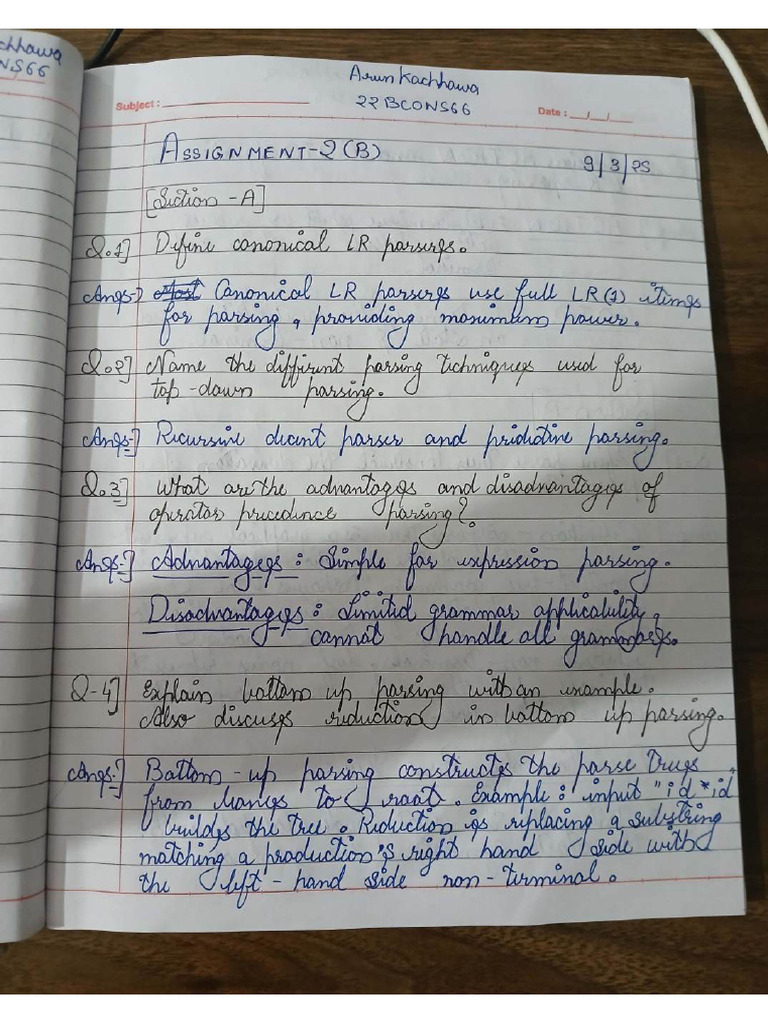 chhawa
NS66
Arun Kachhawa
22BCONS66
Subject :
Date : __/__/__
ASSIGNMENT-2(B)
9/3/25
[Section -A]
Q.1] Define canonical LR parsers.
Ans-] Canonical LR parsers use full LR(1) items
for parsing, providing maximum power.
Q.2] Name the different parsing techniques used for
top-down parsing.
Ans-] Recursive decent parser and predictive parsing.
Q.3] What are the advantages and disadvantages of
operator precedence parsing?
Ans-] Advantages: Simple for expression parsing.
Disadvantages: Limited grammar applicability,
cannot handle all grammars.
Q-4] Explain bottom up parsing with an example.
Also discuss reduction in bottom up parsing.
Ans-] Bottom-up parsing constructs the parse trees
from leaves to root. Example: input "id*id
builds the tree. Reduction is replacing a substring
matching a production's right hand side with
the left-hand side non-terminal.